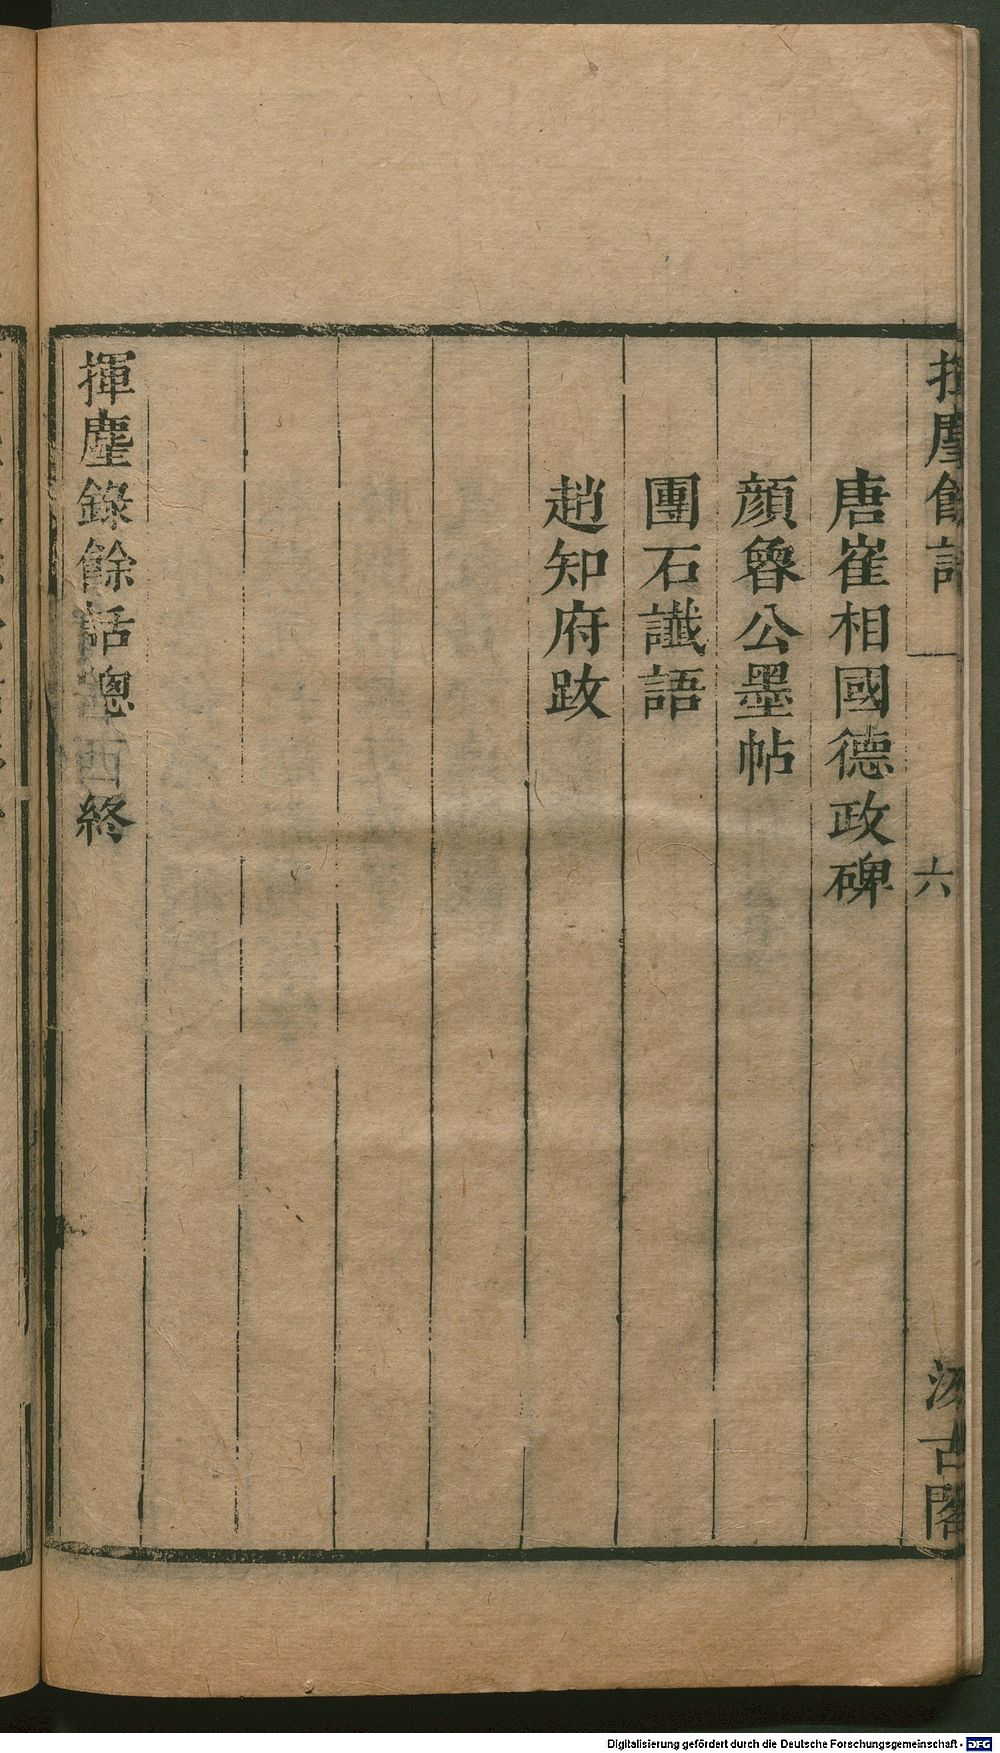 揮麈餘話
六
汲古閣
唐崔相國德政碑
顏魯公墨帖
團石讖語
趙知府跋
揮麈錄餘話總目終
Digitalisierung gefördert durch die Deutsche Forschungsgemeinschaft - DFG